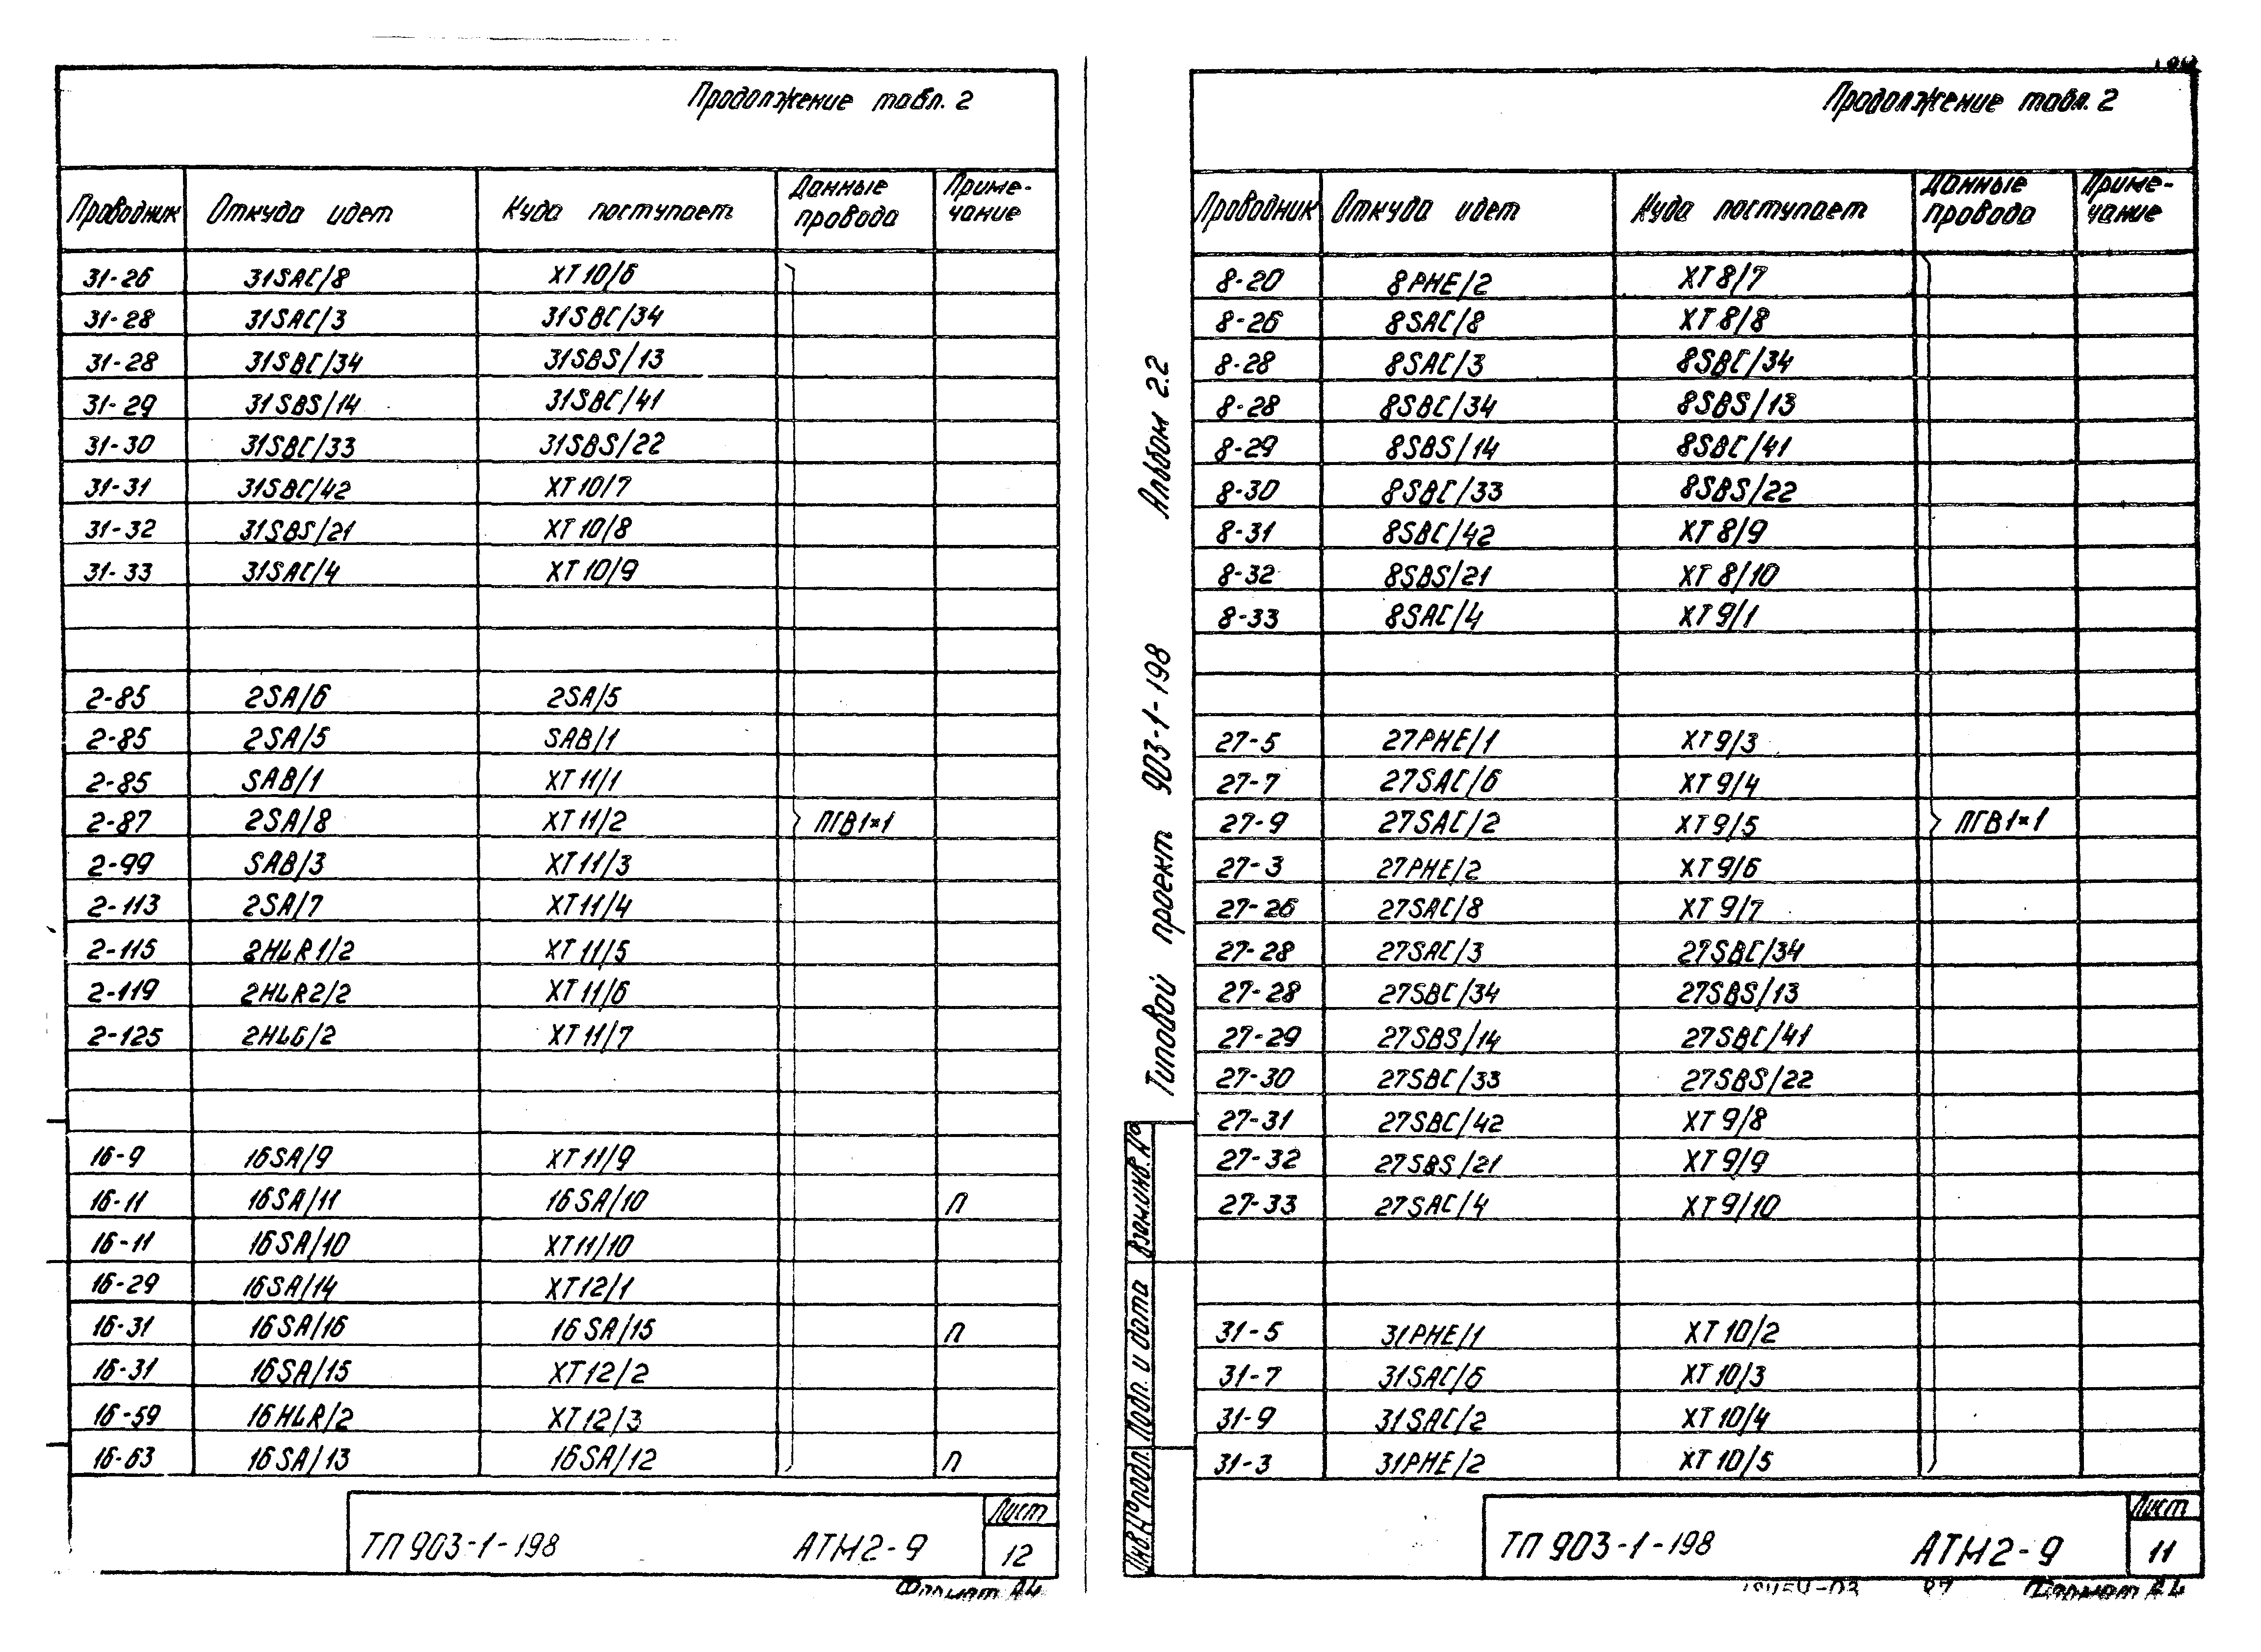 Продолжение табл. 2
Проводник Откуда идет Куда поступает Данные провода Приме-чание
31-26 31SAC/8 XT10/6
31-28 31SAC/3 31SBC/34
31-28 31SBC/34 31SBS/13
31-29 31SBS/14 31SBC/41
31-30 31SBC/33 31SBS/22
31-31 31SBC/42 XT10/7
31-32 31SBS/21 XT10/8
31-33 31SAC/4 XT10/9
2-85 2SA/6 2SA/5
2-85 2SA/5 SAB/1
2-85 SAB/1 XT11/1
2-87 2SA/8 XT11/2 ПГВ1×1
2-99 SAB/3 XT11/3
2-113 2SA/7 XT11/4
2-115 2HLR1/2 XT11/5
2-119 2HLR2/2 XT11/6
2-125 2HLG/2 XT11/7
16-9 16SA/9 XT11/9
16-11 16SA/11 16SA/10 П
16-11 16SA/10 XT11/10
16-29 16SA/14 XT12/1
16-31 16SA/16 16SA/15 П
16-31 16SA/15 XT12/2
16-59 16HLR/2 XT12/3
16-63 16SA/13 16SA/12 П
ТП 903-1-198 АТМ2-9 Лист 12
Формат А4
Продолжение табл. 2
Проводник Откуда идет Куда поступает Данные провода Приме-чание
8-20 8PHE/2 XT8/7
8-26 8SAC/8 XT8/8
8-28 8SAC/3 8SBC/34
8-28 8SBC/34 8SBS/13
8-29 8SBS/14 8SBC/41
8-30 8SBC/33 8SBS/22
8-31 8SBC/42 XT8/9
8-32 8SBS/21 XT8/10
8-33 8SAC/4 XT9/1
27-5 27PHE/1 XT9/3
27-7 27SAC/6 XT9/4
27-9 27SAC/2 XT9/5 ПГВ1×1
27-3 27PHE/2 XT9/6
27-26 27SAC/8 XT9/7
27-28 27SAC/3 27SBC/34
27-28 27SBC/34 27SBS/13
27-29 27SBS/14 27SBC/41
27-30 27SBC/33 27SBS/22
27-31 27SBC/42 XT9/8
27-32 27SBS/21 XT9/9
27-33 27SAC/4 XT9/10
31-5 31PHE/1 XT10/2
31-7 31SAC/6 XT10/3
31-9 31SAC/2 XT10/4
31-3 31PHE/2 XT10/5
ТП 903-1-198 АТМ2-9 Лист 11
Формат А4
Типовой проект 903-1-198 Альбом 2.2
Инв.№ подл. Подп. и дата Взам.инв.№